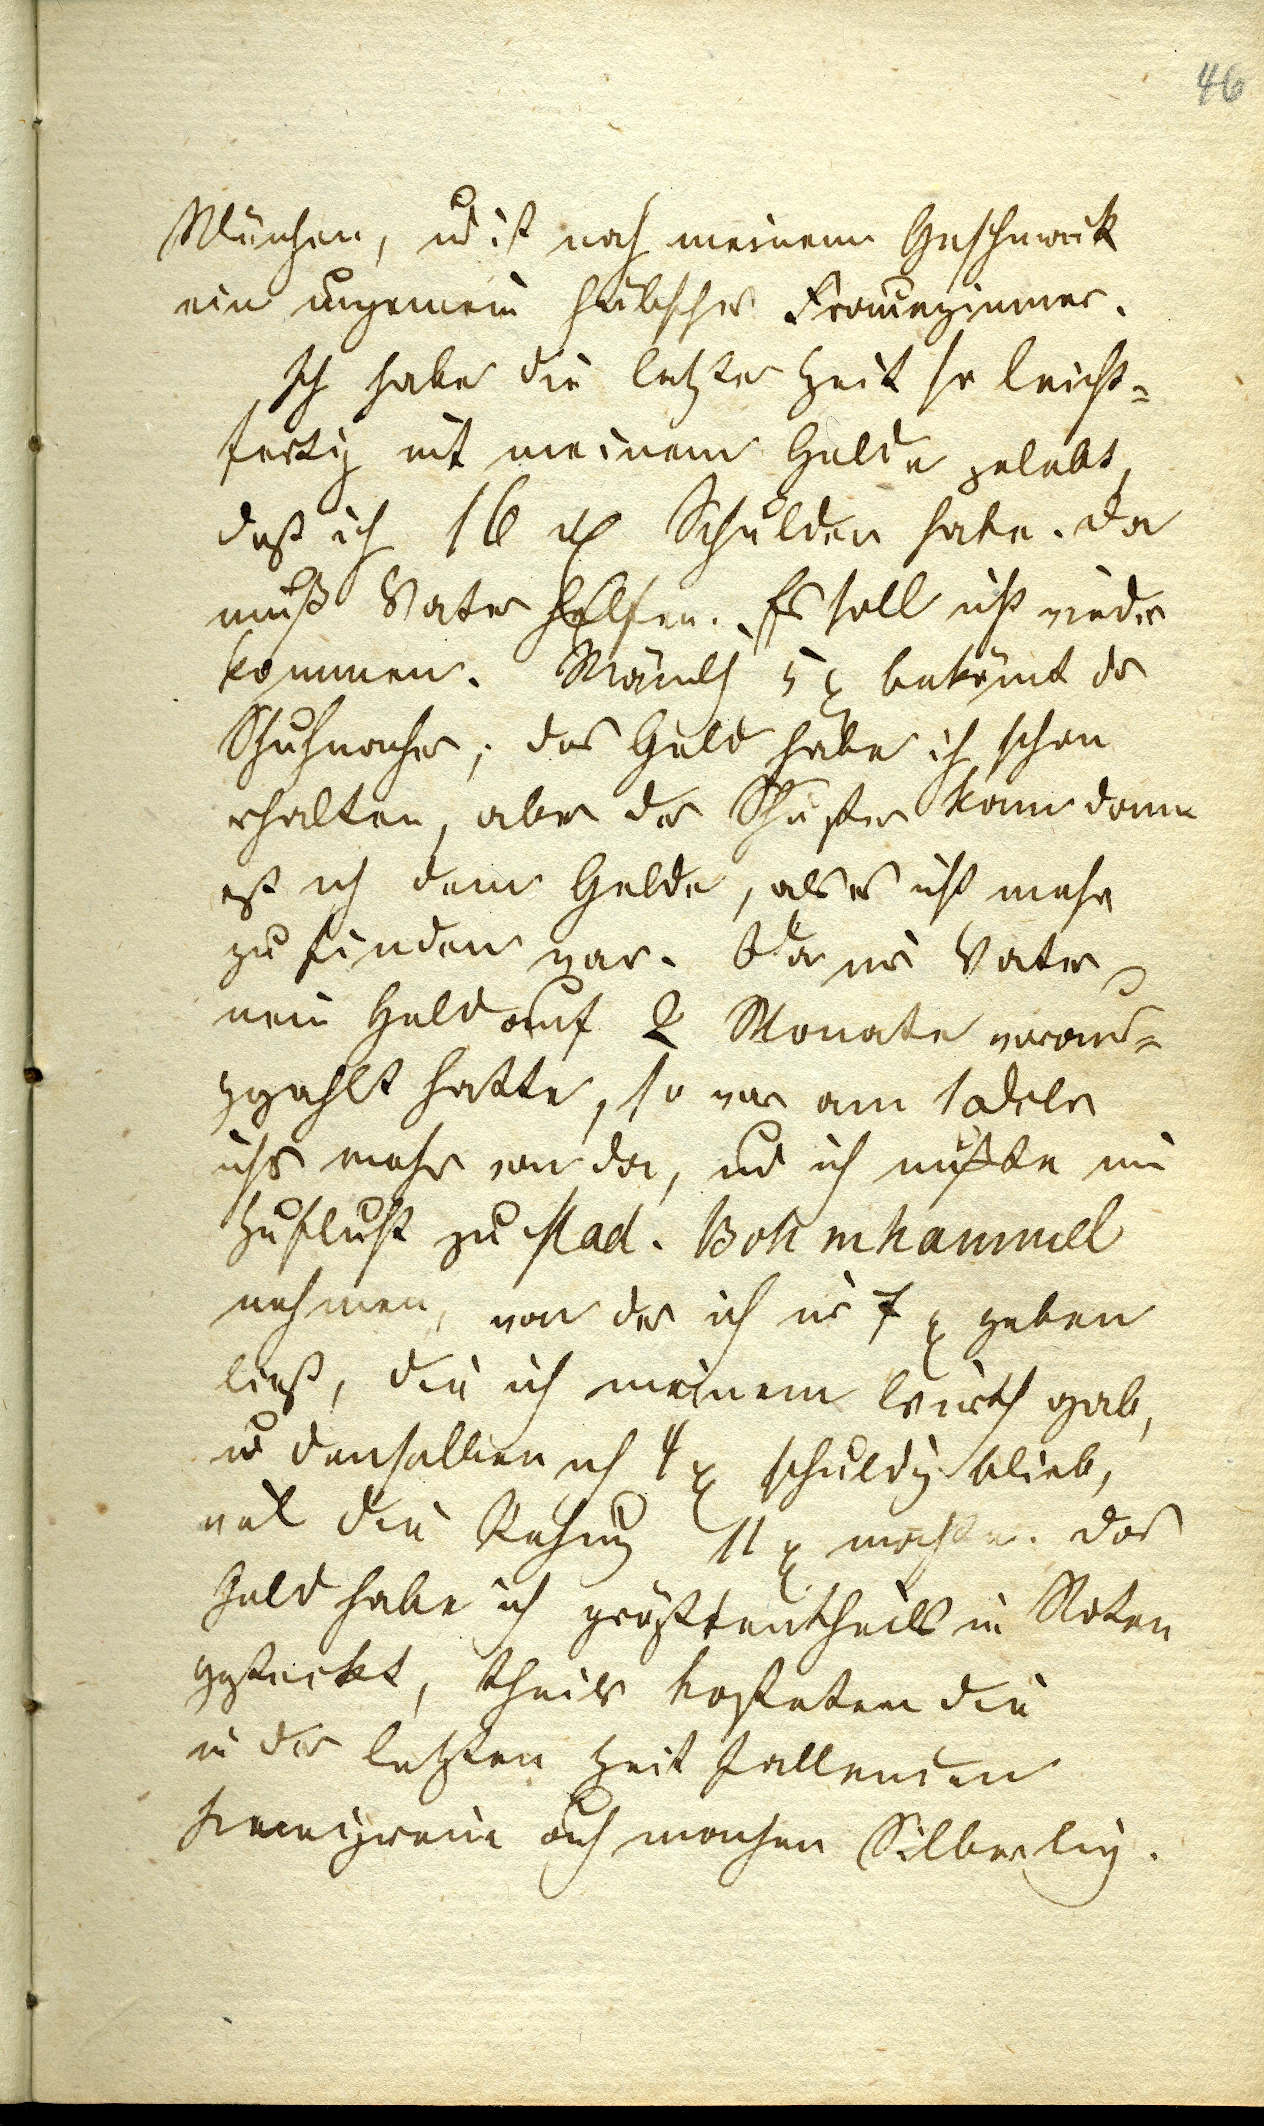 46
München, u ist nach meinem Geschmack
ein ungemein hübsches Frauenzimmer.
Ich habe die letzte Zeit so leicht=
fertig mit meinem Gelde gelebt,
daß ich 16 rℓ Schulden habe. Da
muß Vater helfen. Es soll nicht wieder
kommen. Nämlich 5 rℓ bekömmt der
Schuhmacher; das Geld habe ich schon
erhalten, aber der Schuster kam dann
erst nach dem Gelde, als es nicht mehr
zu finden war. Da mir Vater
mein Geld auf 2 Monate voraus=
gezahlt hatte, so war am
nichts mehr von da, und ich mußte meine
Zuflucht zu Mad. Böhmhammel
nehmen, von der ich mir 7 rℓ geben
ließ, die ich meinem Wirth gab,
u demselben noch 4 rℓ schuldig blieb,
weil die Rechnung 11 rℓ machte. Das
Geld habe ich größtentheils in Noten
gesteckt, theils kosteten die
in der letzten Zeit fallenden
auch manchen Silberling.